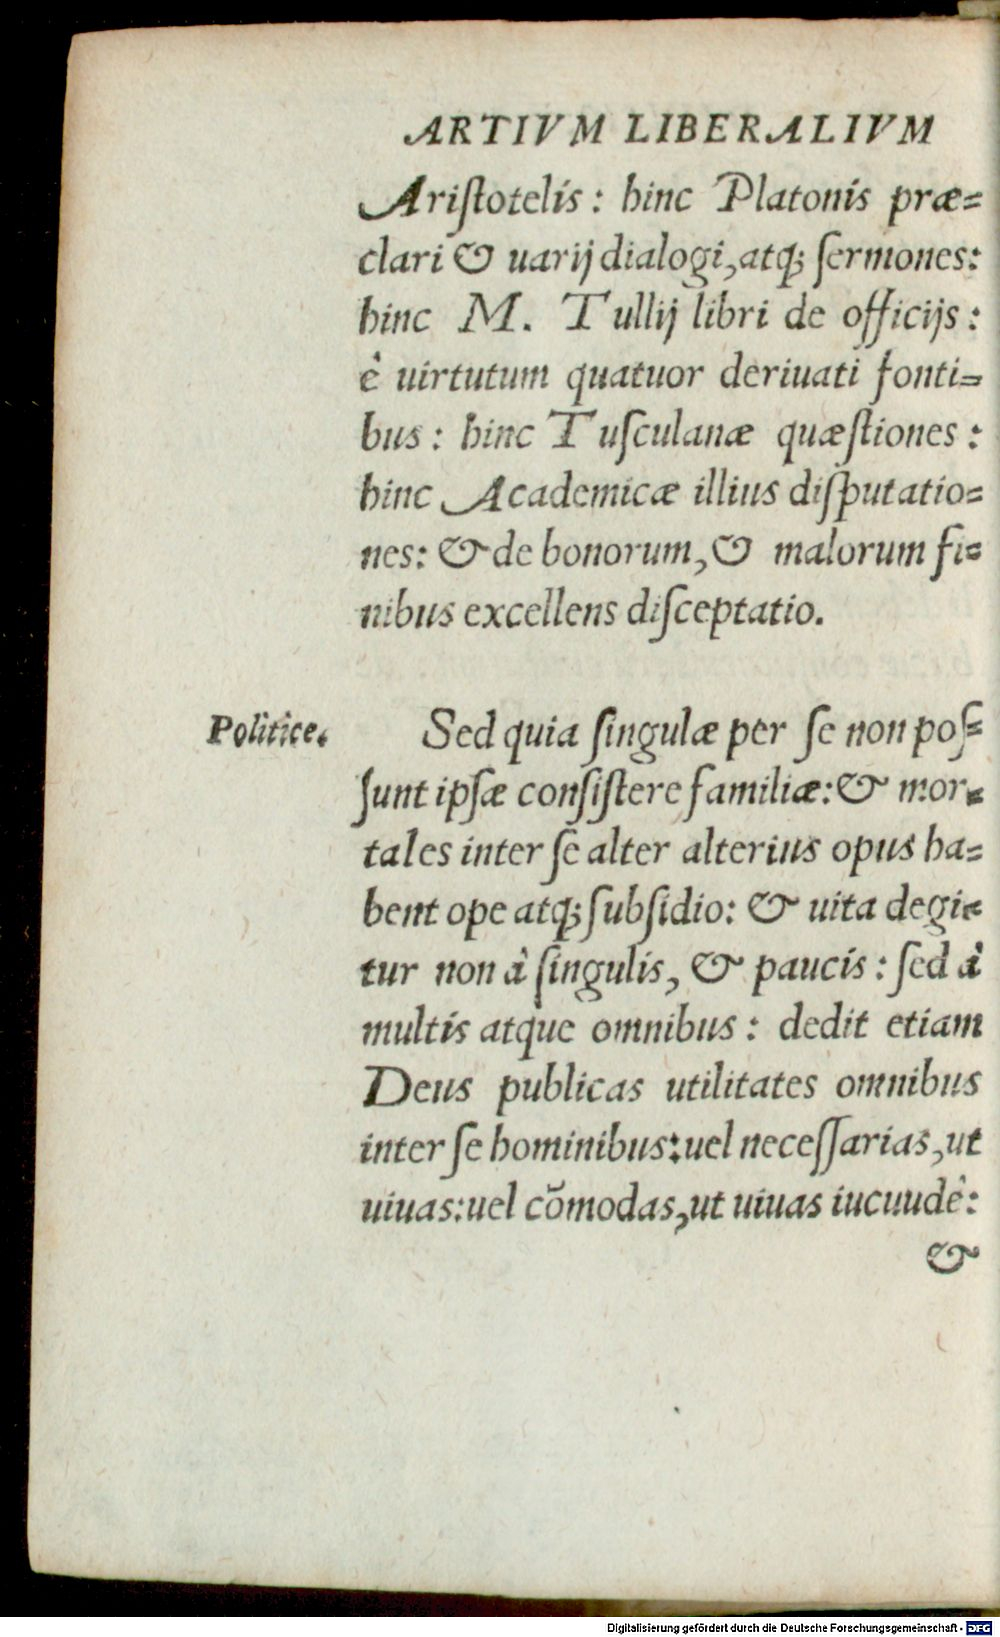 ARTIVM LIBERALIVM
Ariſtotelis: hinc Platonis præ=
clari & uarij dialogi, atq; ſermones:
hinc M. Tullij libri de officijs:
è uirtutum quatuor deriuati fonti=
bus: hinc Tuſculanæ quæſtiones:
hinc Academicæ illius diſputatio=
nes: & de bonorum, & malorum fi=
nibus excellens diſceptatio.
Politice.
Sed quia ſingulæ per ſe non poſ=
ſunt ipſæ conſiſtere familiæ: & mor=
tales inter ſe alter alterius opus ha=
bent ope atq; ſubſidio: & uita degi=
tur non à ſingulis, & paucis: ſed à
multis atque omnibus: dedit etiam
Deus publicas utilitates omnibus
inter ſe hominibus: uel neceſſarias, ut
uiuas: uel cōmodas, ut uiuas iucuudè:
&
Digitalisierung gefördert durch die Deutsche Forschungsgemeinschaft - DFG